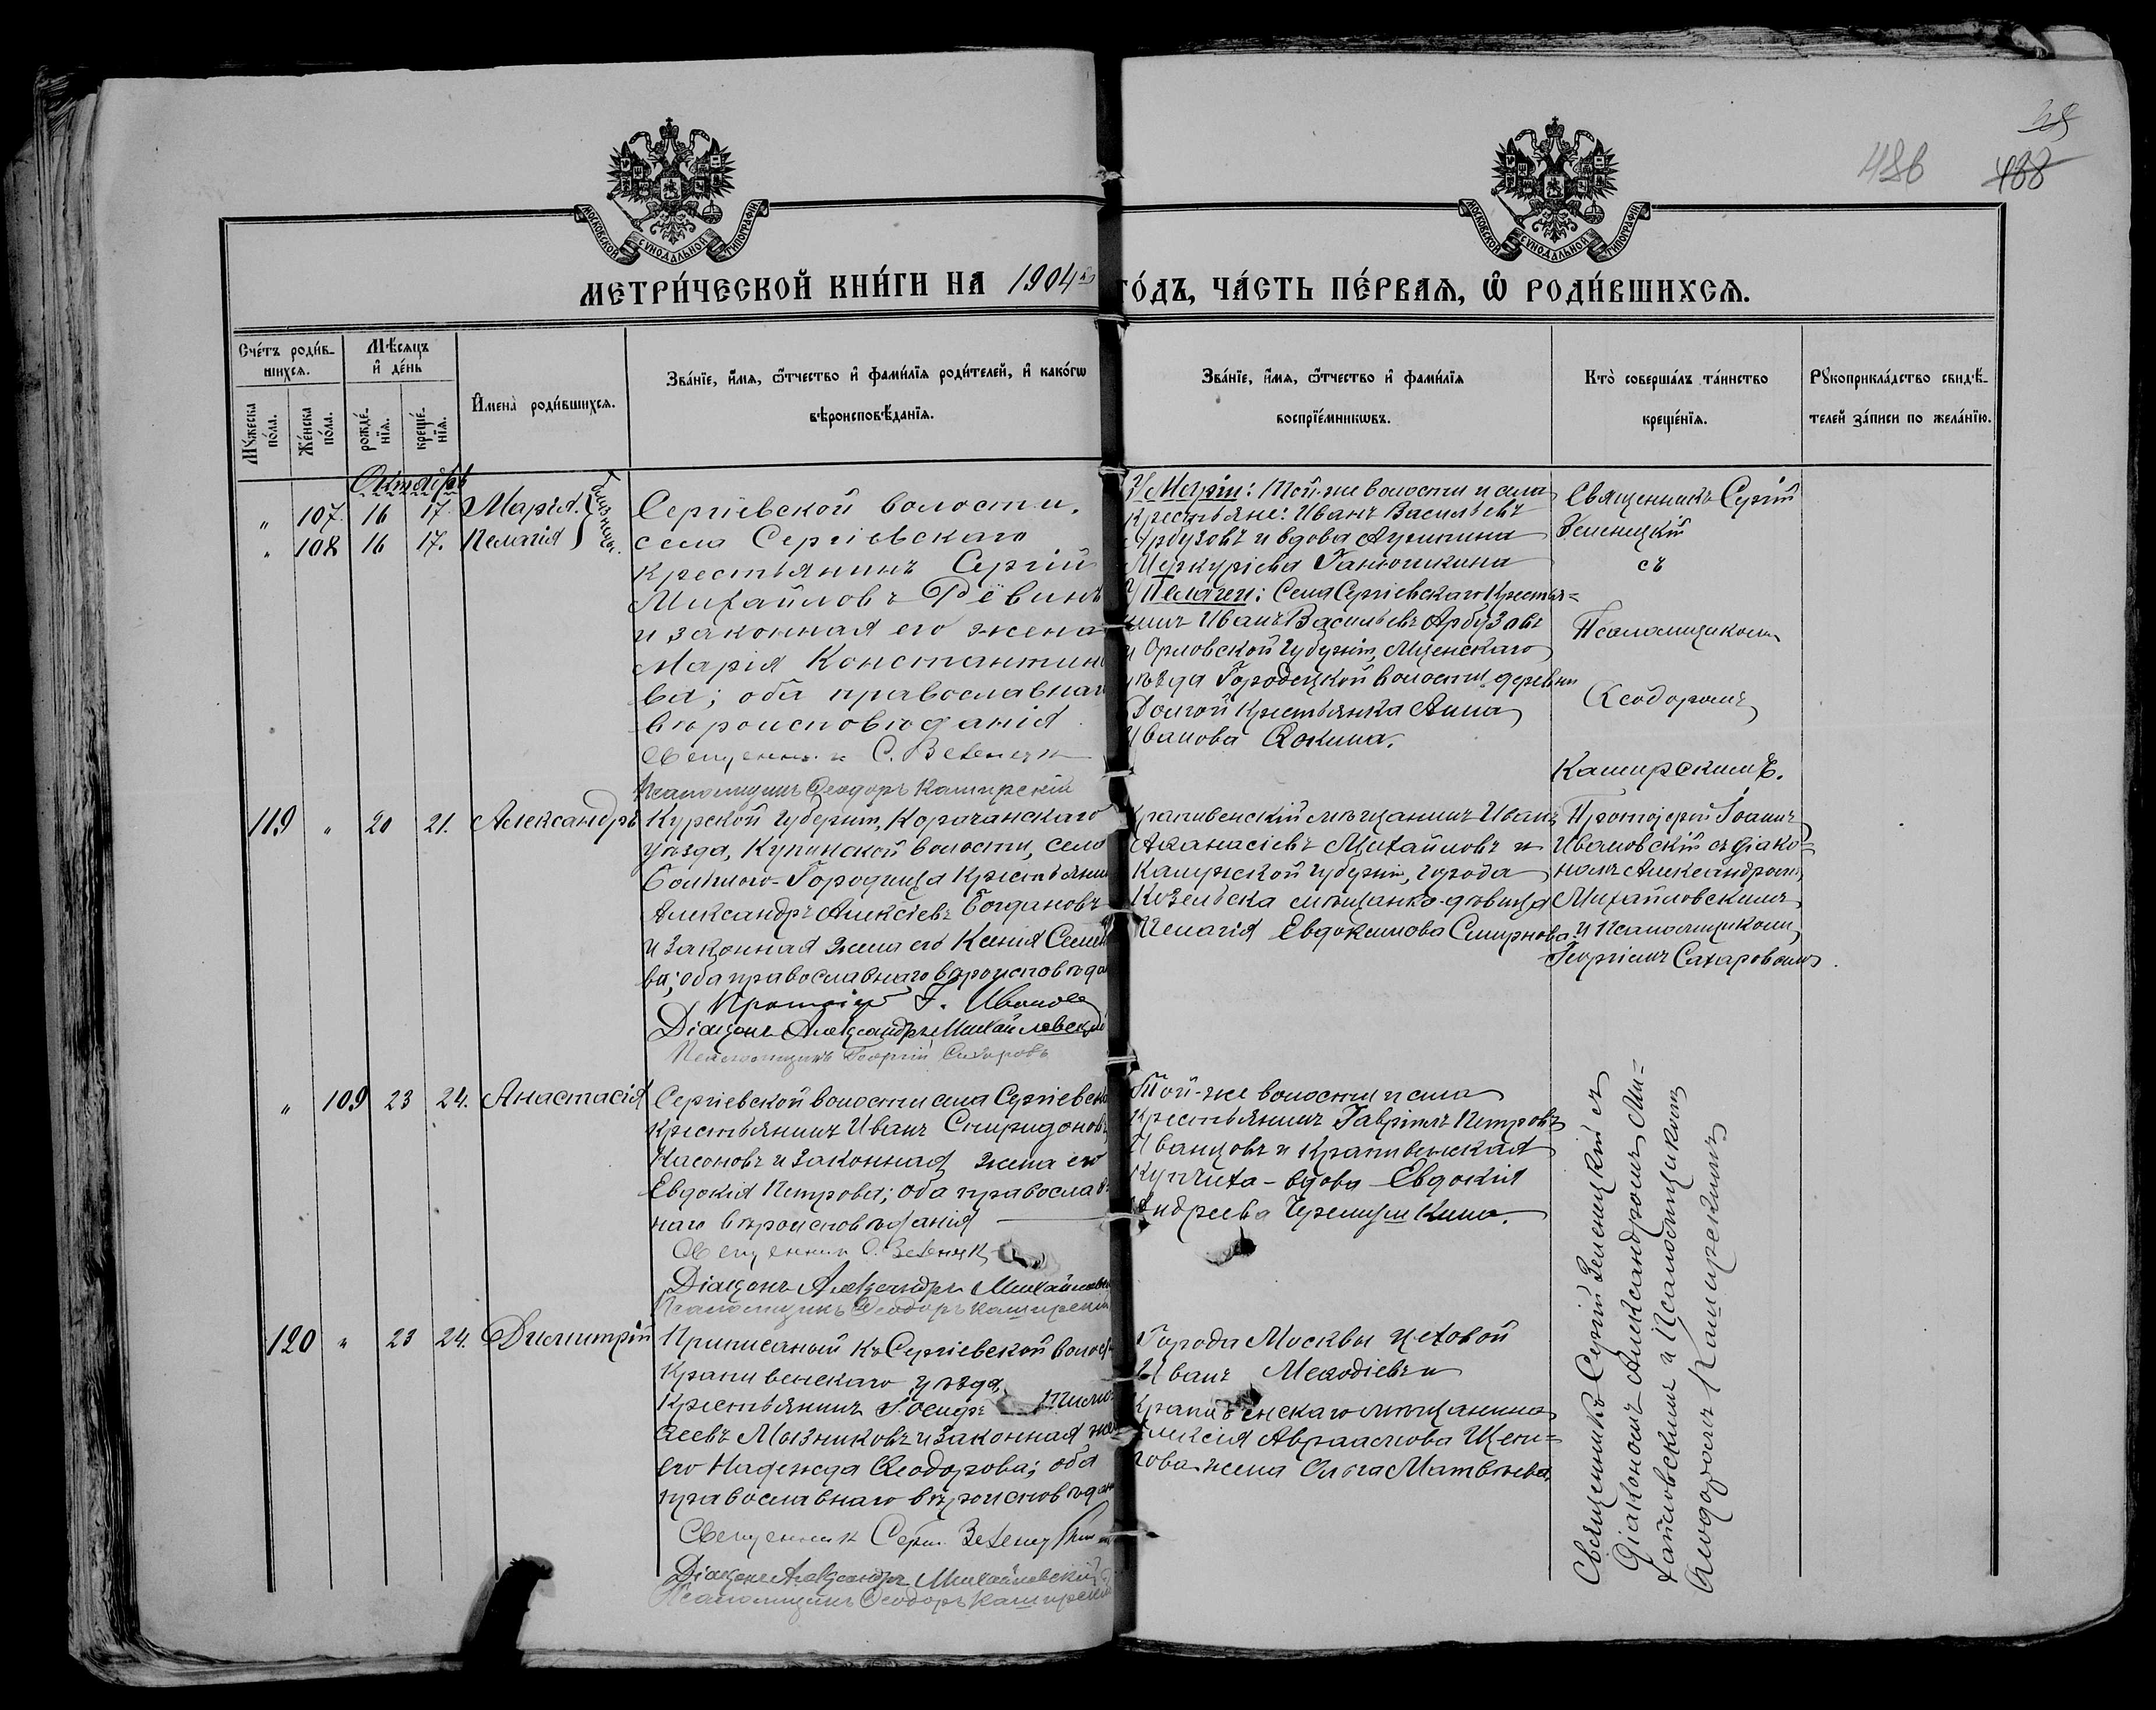 486 488
МОСКОВСКОЙ СѴНОДАЛЬНОЙ ТИПОГРАФІИ
МОСКОВСКОЙ СѴНОДАЛЬНОЙ ТИПОГРАФІИ
МЕТРИ́ЧЕСКОЙ КНИ́ГИ НА 1904й ГО́ДЪ, ЧА́СТЬ ПЕ́РВАѦ, Ѡ҆ РОДИ́ВШИХСѦ.
Сче́тъ роди́в-
шихсѧ.
Мꙋ́жеска по́ла.
Же́нска по́ла.
Мѣ́сѧцъ и҆ де́нь
рожде́-нїѧ.
креще́-нїѧ.
И҆мена̀ роди́вшихсѧ.
Зва́нїе, и҆́мѧ, ѻ҆́тчество и҆ фами́лїѧ роди́телей, и҆ како́гѡ
вѣроисповѣ́данїѧ.
Зва́нїе, и҆́мѧ, ѻ҆́тчество и҆ фами́лїѧ
воспрїе́мникѡвъ.
Кто̀ соверша́лъ та́инство
креще́нїѧ.
Рꙋкоприкла́дство свидѣ́-
телей за́писи по жела́нїю.
Октябрь
" 107. 16 17. Марія. } близнецы.
" 108 16 17. Пелагія
Сергіевской волости,
села Сергіевскаго
крестьянинъ Сергій
Михайловъ Рёвинъ
и законная его жена
Марія Константино
ва; оба православнаго
вѣроисповѣданія.
Священник С. Зеленецк
Псаломщикъ Ѳеодоръ Каширскій
У Маріи: Той-же волости и села
крестьяне: Иванъ Васильевъ
Арбузовъ и вдова Акулина
Меркуріева Ганюшкина
У Пелагеи: Села Сергіевскаго кресть=
нинъ Иванъ Васильевъ Арбузовъ
и Орловской губерніи, Мценскаго
уѣзда Городецкой волости деревни
Долгой крестьянка Анна
Иванова Ѳокина.
Священникъ Сергій
Зеленецкій
съ
Псаломщикомъ
Ѳеодоромъ
Каширскимъ.
119 " 20 21. Александръ
Курской губерніи, Корочанскаго
уѣзда, Купинской волости, села
Большого-Городища крестьянин
Александръ Алексіевъ Богдановъ
и законная жена его Ксенія Семено
ва; оба православнаго вѣроисповѣдан
Протоіер І. Иванов
Діаконъ Александръ Михайловскій
Псаломщикъ Георгій Сахаровъ
Крапивенскій мѣщанинъ Иванъ
Аѳанасіевъ Михайловъ и
Калужской губерніи, города
Козельска мѣщанка-дѣвица
Пелагія Евдокимова Смирнова.
Протоіерей Іоаннъ
Ивановскій съ діако-
номъ Александромъ
Михайловскимъ
и Псаломщикомъ
Георгіемъ Сахаровымъ.
" 109 23 24. Анастасія
Сергіевской волости села Сергіевска
крестьянинъ Иванъ Спиридоновъ
Насоновъ и законная жена его
Евдокія Петрова; оба православ-
наго вѣроисповѣданія
Священник С. Зеленецк
Діаконъ Александръ Михайловск
Псаломщикъ Ѳеодоръ Каширскій
Той-же волости и села
крестьянинъ Гавріилъ Петровъ
Иванцовъ и Крапивенская
купчиха-вдова Евдокія
Андреева Черемушкина.
120 " 23 24. Димитрій
Приписаный къ Сергіевской волос
Крапивенскаго уѣзда,
крестьянинъ Іосифъ Тимо-
ѳеевъ Мызниковъ и законная же
его Надежда Ѳеодорова; оба
православнаго вѣроисповѣдан
Священник Серг. Зеленецкій
Діаконъ Александръ Михайловскій
Псаломщикъ Ѳеодоръ Каширскій
Города Москвы цеховой
Иванъ Меѳодіевъ и
Крапивенскаго мѣщанина
Алексія Авраамова Щени=
кова жена Ольга Матвѣева.
Священникъ Сергій Зеленецкій съ
Діакономъ Александромъ Ми-
хайловскимъ и Псаломщикомъ
Ѳеодоромъ Каширскимъ